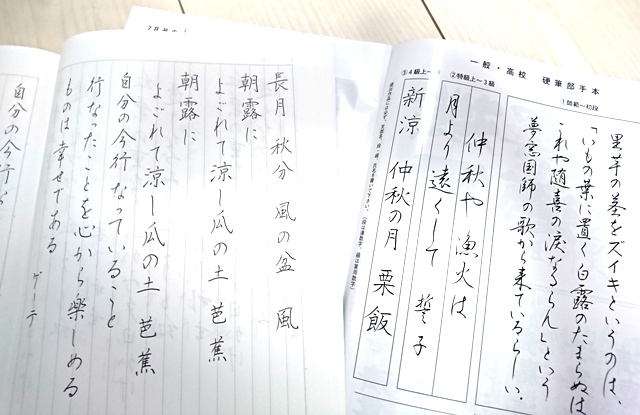 一般・高校 硬筆部手本
①師範〜初段
里芋の茎をズイキというのは、
「いもの葉に置く白露のたまらぬは
これや随喜の涙なるらん」という
夢窓国師の歌から来ているらしい。
②特級上〜3級
仲秋や 漁火は
月より遠くして 誓子
③4級上〜
新涼 仲秋の月 栗飯
長月 秋分 風の盆 風
朝露に
よごれて涼し瓜の土 芭蕉
朝露に
よごれて涼し瓜の土 芭蕉
自分の今行なっていること
行なったことを心から楽しめる
ものは幸せである
ゲーテ
自分の今行